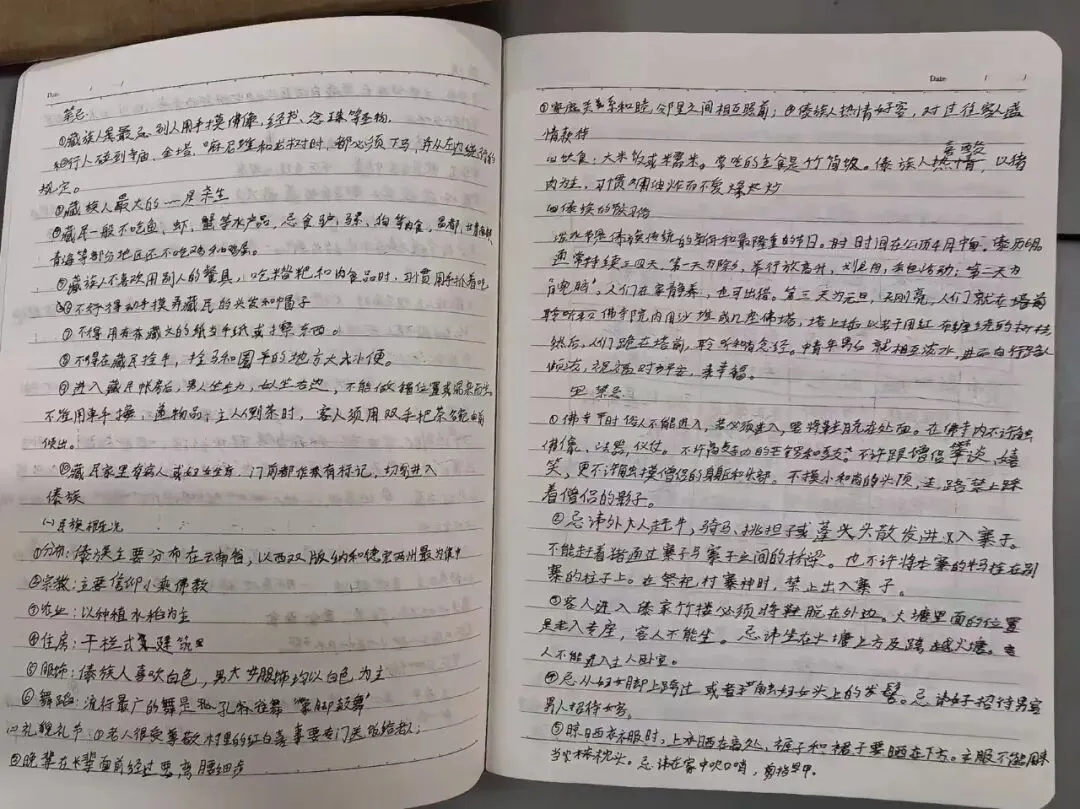 禁忌
①藏族人最忌别人用手摸佛像、经书、念珠等圣物
②行人碰到寺庙、金塔、"麻尼堆和龙树时，都必须下马，并从左边绕行的
规定。
③藏族人最大的一是杀生
④藏民一般不吃鱼、虾、蟹等水产品，忌食驴、骡、狗等肉食，昌都
青海等部分地区还不吃鸡和鸡蛋。
⑤藏族人不喜欢用别人的餐具，吃糌粑和肉食品时，习惯用手抓着吃
⑥不得动手摸弄藏民的头发和帽子
⑦不得用有藏文的纸当手纸或擦东西。
⑧不得在藏民拴牛，拴马和圈羊的地方大小便。
⑨进入藏民帐房后，男人坐左，女坐右边，不能做错位置或混杂而坐。
不准用单手接、递物品；主人倒茶时，客人须用双手把茶碗向前
倾出。
⑩藏民家里有病人或妇女生育，门前都作有标记，切勿进入
傣族
(一)民族概况
①分布：傣族主要分布在云南省，以西双版纳和德宏两州最为集中
②宗教：主要信仰小乘佛教
③农业：以种植水稻为主
④住房：干栏式建筑
⑤服饰：傣族人喜欢白色，男大女服饰均以白色为主
⑥舞蹈：流行最广的舞是孔雀舞"象脚鼓舞"
(二)礼貌礼节：①老人很受尊敬村里的红白喜事要专门送饭给老人；
②晚辈在长辈面前经过要弯腰细步
Date
③家庭关系和睦，邻里之间相互照前；④傣族人热情好客，对过往客人盛
情款待
(3)饮食：大米饭或米糯米。常吃的主食是竹筒饭。傣族人喜酸，以猪
肉为主，习惯用油炸而不爱爆火炒
(4)傣族的
泼水节是傣族传统的新年和最隆重的节日。时时间在公历4月中旬，傣历6月
通常持续三四天，第一天为除夕，举行放高升，划龙舟，丢包活动；第二天为
"空脑"，人们在家静养，也可出猎。第三天为元旦，天刚亮，人们就在塔前
聆听和佛寺院内用沙堆成几座佛塔，塔上插以
然后，人们跪在塔前，聆听和尚念经。中青年男女就相互泼水，进而向行路人
倾泼，祝福对方平安，幸福。
四、禁忌
①佛寺平时俗人不能进入，若必须进入，要将鞋脱在处面。在佛寺内不许触
佛像，法器，仪仗。不许跟僧侣攀谈，嬉
笑，更不许触摸僧侣的身躯和头部。不摸小和尚的头顶，走路禁止踩
着僧侣的影子。
②忌讳外大人赶牛，骑马、挑担子或蓬头散发进入寨子。
不能赶着猪通过寨子与寨子之间的桥梁。也不许将本寨的牛拴在别
寨的柱子上。在祭祀村寨神时，禁止出入寨子。
③客人进入傣家竹楼必须将鞋脱在外边。火塘里面的位置
是老人专座，客人不能坐。忌讳坐在火塘上方及跨越火塘。
人不能进入主人卧室。
④忌从妇女脚上跨过或者触妇女头上的发髻。忌讳女子招待男客
男人招待女客。
⑤晾晒衣服时，上衣晒在高处，裤子和裙子要晒在下方。主服不能用来
当枕头。忌讳在家中吹口哨，剪指甲。